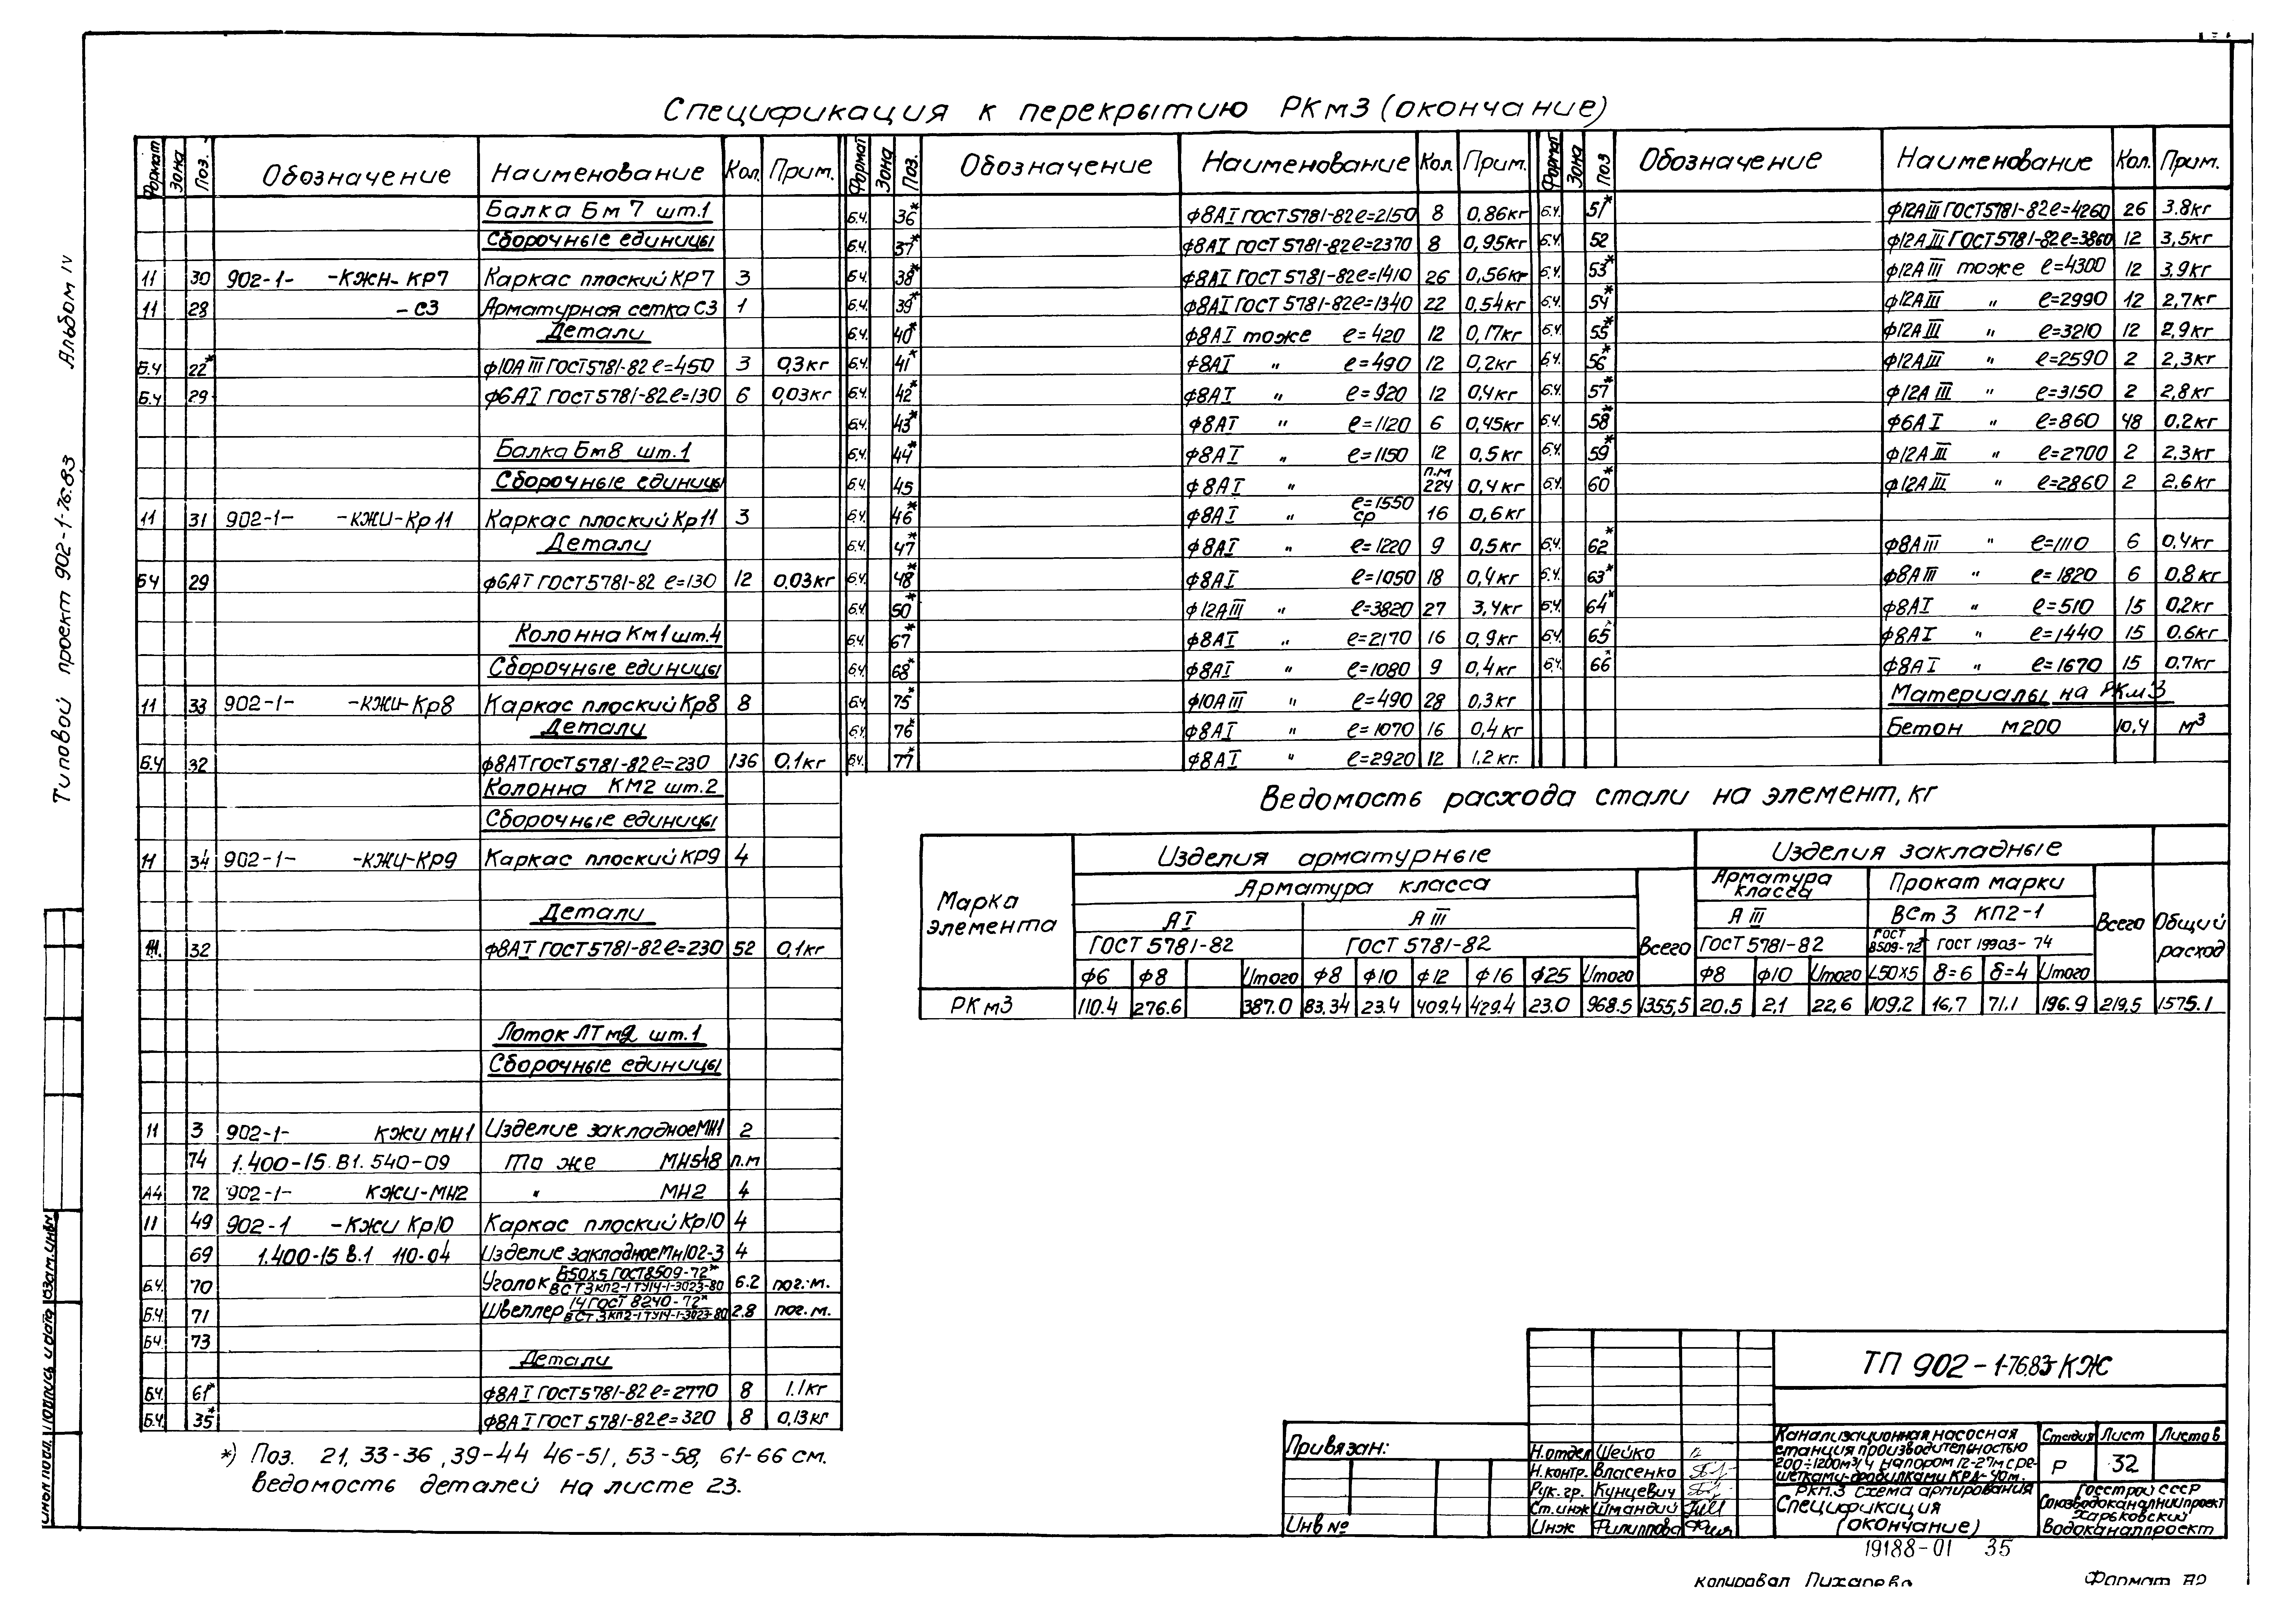 Спецификация к перекрытию РКм3 (окончание)
Типовой проект 902-1-76.83 Альбом IV
Формат Зона Поз. Обозначение Наименование Кол. Прим.
Балка Бм7 шт.1
Сборочные единицы
11 30 902-1- -КЖН-КР7 Каркас плоский КР7 3
11 28 -С3 Арматурная сетка С3 1
Детали
Б.Ч 22* ϕ10АIII ГОСТ5781-82 ℓ=450 3 0,3кг
Б.Ч 29 ϕ6АI ГОСТ5781-82 ℓ=130 6 0,03кг
Балка Бм8 шт.1
Сборочные единицы
11 31 902-1- -КЖИ-Кр11 Каркас плоский Кр11 3
Детали
БЧ 29 ϕ6АI ГОСТ5781-82 ℓ=130 12 0,03кг
Колонна Км1 шт.4
Сборочные единицы
11 33 902-1- -КЖИ-Кр8 Каркас плоский Кр8 8
Детали
Б.Ч 32 ϕ8АI ГОСТ5781-82 ℓ=230 136 0,1кг
Колонна КМ2 шт.2
Сборочные единицы
11 34 902-1- -КЖИ-КР9 Каркас плоский КР9 4
Детали
32 ϕ8АI ГОСТ5781-82 ℓ=230 52 0,1кг
Лоток ЛТм2 шт.1
Сборочные единицы
11 3 902-1- КЖИ МН1 Изделие закладное МН1 2
74 1.400-15.В1.540-09 То же МН548 п.м
А4 72 902-1- КЖИ-МН2 " МН2 4
11 49 902-1 -КЖИ Кр10 Каркас плоский Кр10 4
69 1.400-15 в.1 110-04 Изделие закладное Мн102-3 4
Б.Ч. 70 Уголок Б50х5 ГОСТ8509-72* / ВСТ3кп2-1 ТУ14-1-3023-80 6.2 пог.м.
Б.Ч. 71 Швеллер 14 ГОСТ 8240-72* / ВСТ3кп2-1 ТУ14-1-3023-80 2.8 пог.м.
БЧ 73
Детали
Б.Ч. 61* ϕ8АI ГОСТ5781-82 ℓ=2770 8 1.1кг
Б.Ч. 35* ϕ8АI ГОСТ 5781-82 ℓ=320 8 0,13кг
*) Поз. 21, 33-36, 39-44 46-51, 53-58, 61-66 см.
ведомость деталей на листе 23.
Формат Зона Поз. Обозначение Наименование Кол. Прим.
Б.Ч. 36* ϕ8АI ГОСТ5781-82 ℓ=2150 8 0,86кг
Б.Ч. 37* ϕ8АI ГОСТ 5781-82 ℓ=2370 8 0,95кг
Б.Ч. 38* ϕ8АI ГОСТ 5781-82 ℓ=1410 26 0,56кг
Б.Ч. 39* ϕ8АI ГОСТ 5781-82 ℓ=1340 22 0,54кг
Б.Ч. 40* ϕ8АI тоже ℓ=420 12 0,17кг
Б.Ч. 41* ϕ8АI " ℓ=490 12 0,2кг
Б.Ч. 42* ϕ8АI " ℓ=920 12 0,4кг
Б.Ч. 43* ϕ8АI " ℓ=1120 6 0,45кг
Б.Ч. 44* ϕ8АI " ℓ=1150 12 0,5кг
Б.Ч. 45 ϕ8АI " п.м 224 0,4кг
Б.Ч. 46* ϕ8АI " ℓ=1550 ср 16 0,6кг
Б.Ч. 47* ϕ8АI " ℓ=1220 9 0,5кг
Б.Ч. 48* ϕ8АI ℓ=1050 18 0,4кг
Б.Ч. 50* ϕ12АIII " ℓ=3820 27 3,4кг
Б.Ч. 67* ϕ8АI " ℓ=2170 16 0,9кг
Б.Ч. 68* ϕ8АI " ℓ=1080 9 0,4кг
Б.Ч 75* ϕ10АIII " ℓ=490 28 0,3кг
Б.Ч. 76* ϕ8АI " ℓ=1070 16 0,4кг
Б.Ч. 77* ϕ8АI " ℓ=2920 12 1,2кг.
Формат Зона Поз Обозначение Наименование Кол. Прим.
Б.Ч. 51* ϕ12АIII ГОСТ5781-82 ℓ=4260 26 3.8кг
Б.Ч. 52 ϕ12АIII ГОСТ5781-82 ℓ=3860 12 3,5кг
Б.Ч. 53* ϕ12АIII тоже ℓ=4300 12 3,9кг
Б.Ч. 54* ϕ12АIII " ℓ=2990 12 2,7кг
Б.Ч. 55* ϕ12АIII " ℓ=3210 12 2,9кг
Б.Ч. 56* ϕ12АIII " ℓ=2590 2 2,3кг
Б.Ч. 57* ϕ12АIII " ℓ=3150 2 2,8кг
Б.Ч. 58* ϕ6АI " ℓ=860 48 0.2кг
Б.Ч. 59* ϕ12АIII " ℓ=2700 2 2,3кг
Б.Ч. 60* ϕ12АIII " ℓ=2860 2 2,6кг
Б.Ч. 62* ϕ8АIII " ℓ=1110 6 0,4кг
Б.Ч. 63* ϕ8АIII " ℓ=1820 6 0,8кг
Б.Ч. 64* ϕ8АI " ℓ=510 15 0,2кг
Б.Ч. 65* ϕ8АI " ℓ=1440 15 0.6кг
Б.Ч. 66* ϕ8АI " ℓ=1670 15 0.7кг
Материалы на РКм3
Бетон М200 10,4 м³
Ведомость расхода стали на элемент, кг
Марка элемента Изделия арматурные Изделия закладные Общий расход
Арматура класса Всего Арматура класса Прокат марки Всего
АI АIII АIII ВСт3 КП2-1
ГОСТ 5781-82 ГОСТ 5781-82 ГОСТ 5781-82 ГОСТ 8509-72* ГОСТ 19903-74
ϕ6 ϕ8 Итого ϕ8 ϕ10 ϕ12 ϕ16 ϕ25 Итого ϕ8 ϕ10 Итого L50х5 δ=6 δ=4 Итого
РКм3 110.4 276.6 387.0 83.34 23.4 409.4 429.4 23.0 968.5 1355,5 20,5 2,1 22,6 109,2 16,7 71,1 196.9 219,5 1575.1
ТП 902-1-76.83-КЖ
Привязан:
Инв №
Н.отдел Шейко
Н.контр. Власенко
Рук.гр. Кунцевич
Ст.инж Шмандий
Инж Филиппова
Канализационная насосная
станция производительностью
200÷1200м³/ч напором 12-27м с ре-
шетками-дробилками КРД-40м.
Стадия Лист Листов
Р 32
РКм.3 схема армирования
Спецификация
(окончание)
Госстрой СССР
Союзводоканалниипроект
Харьковский
Водоканалпроект
19188-01 35
Копировал Пихарева
Формат А2
Инв.№ подл. Подпись и дата Взам.инв№